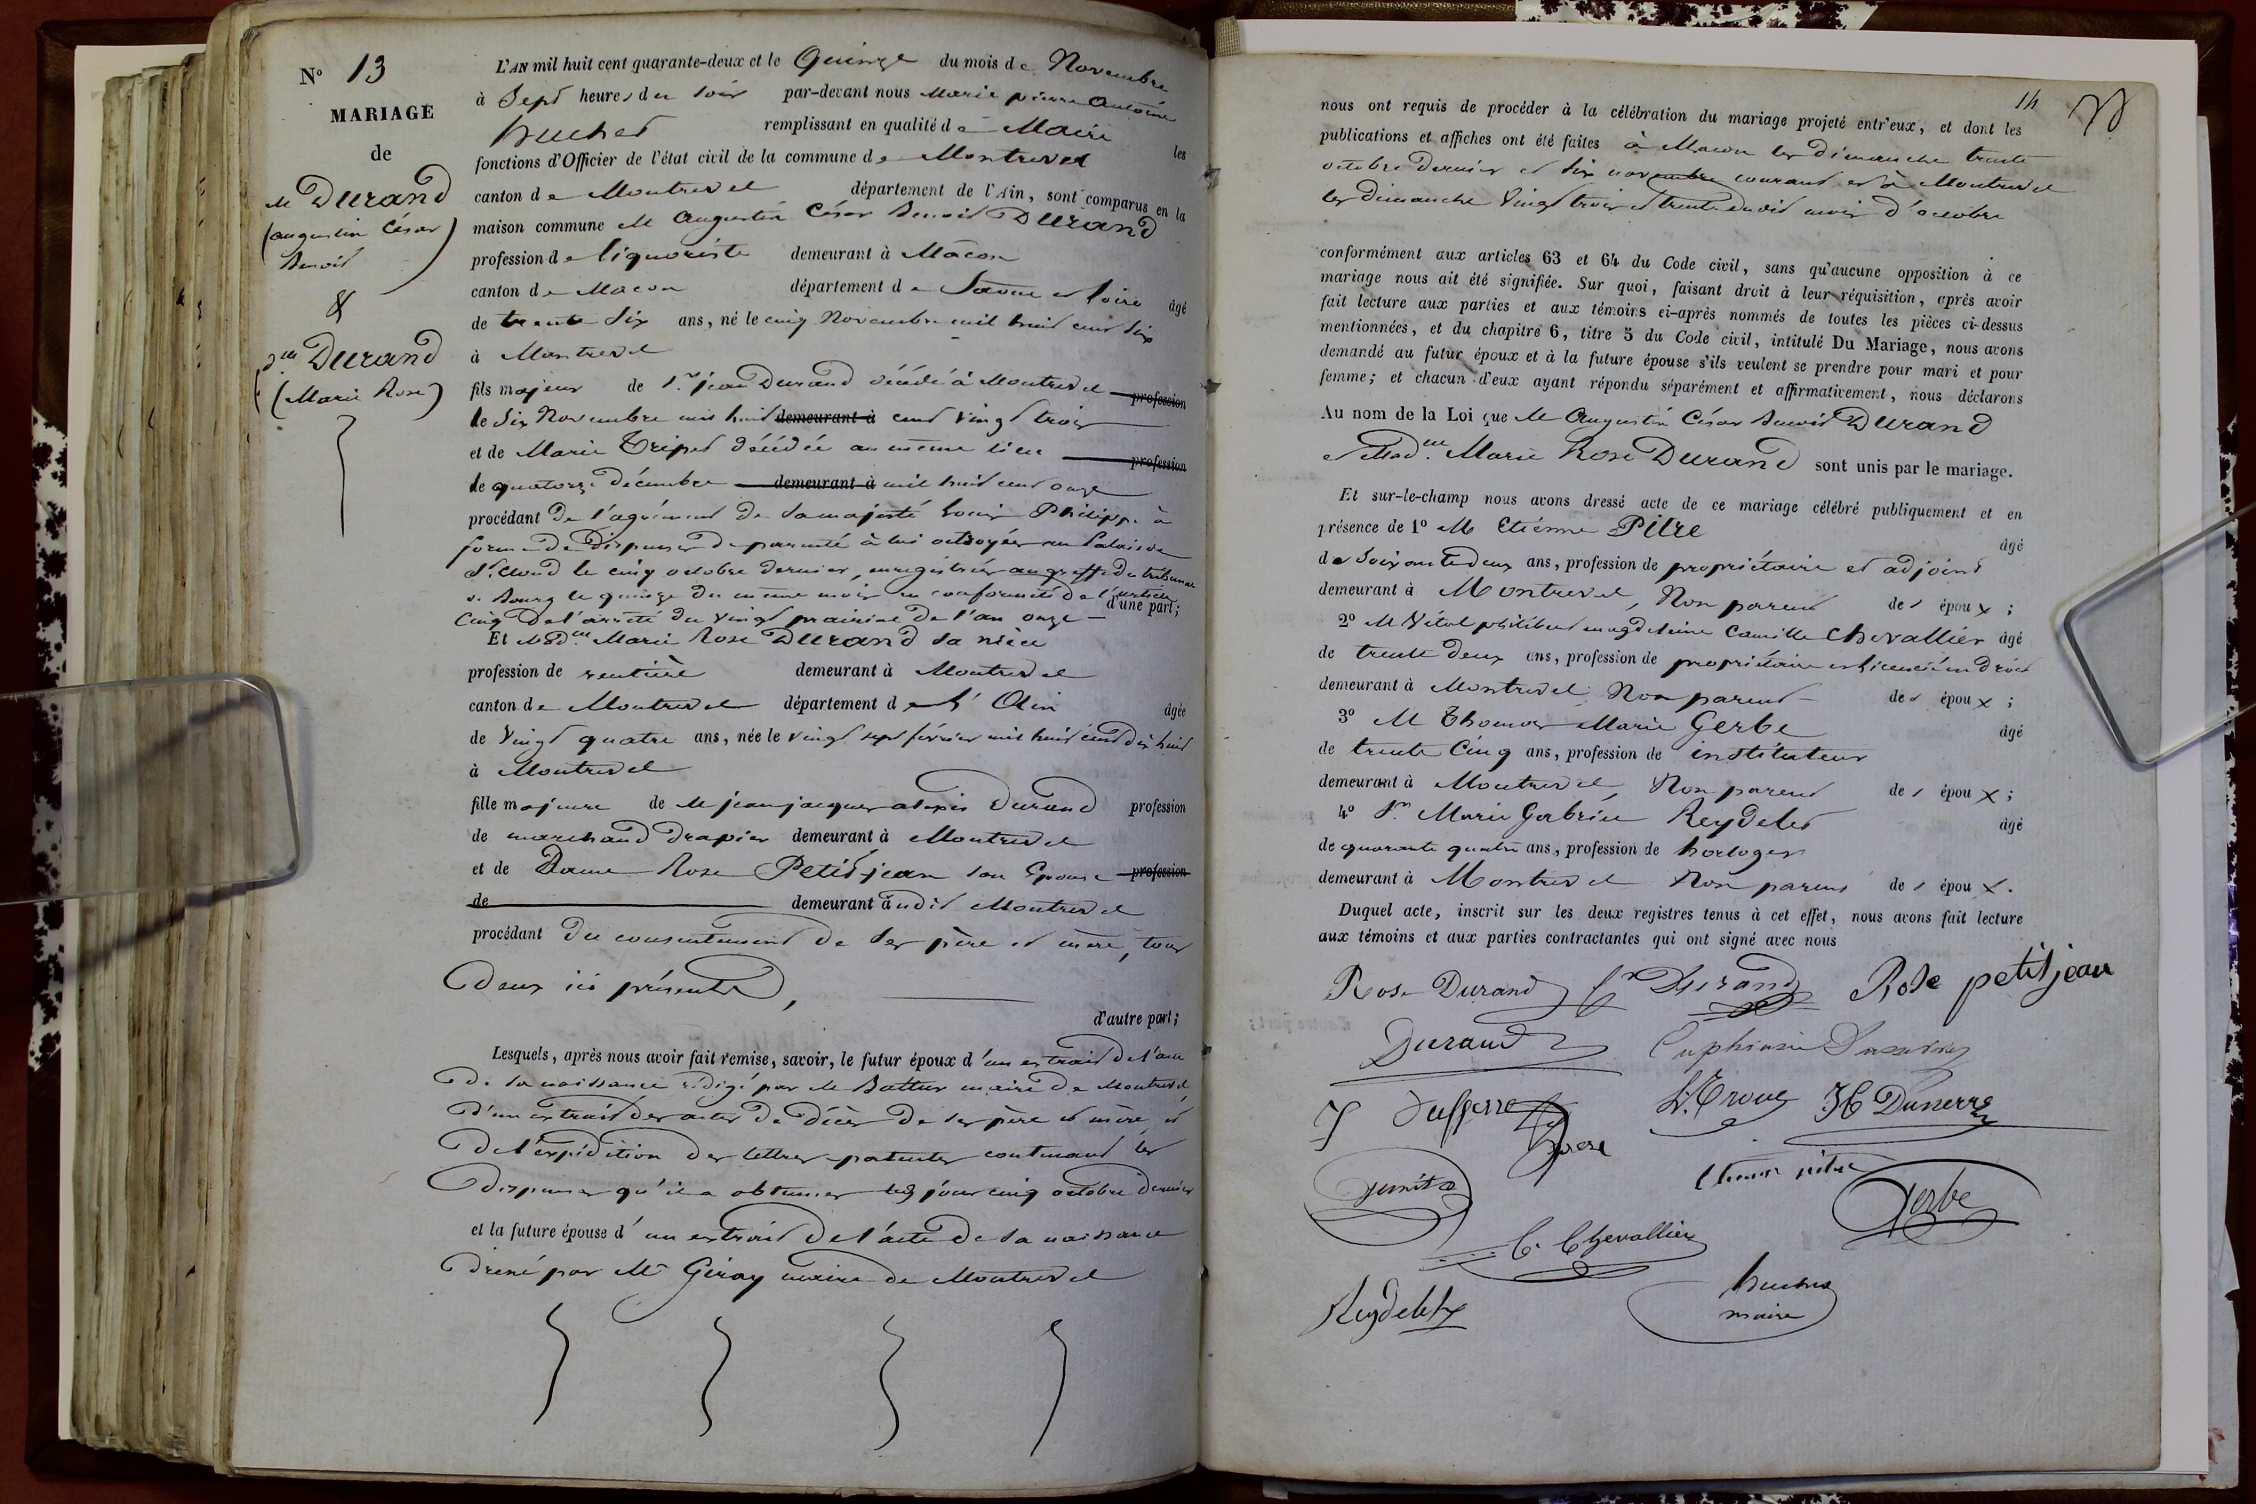 N° 13
MARIAGE
de
M Durand
(augustin César
Benoit)
&
d.lle Durand
(Marie Rose)
L'AN mil huit cent quarante-deux et le Quinze du mois de Novembre
à Sept heures du soir par-devant nous Marie pierre Antoine
huchet remplissant en qualité de Maire les
fonctions d'Officier de l'état civil de la commune de Montrevel
canton de Montrevel département de l'Ain, sont comparus en la
maison commune M Augustin César Benoit Durand
profession de liquoriste demeurant à Mâcon
canton de Macon département de Saone et loire âgé
de trente six ans, né le cinq Novembre mil huit cent six
à Montrevel
fils majeur de S.r jean Durand décédé à Montrevel profession
le six Novembre mil huit demeurant à cent vingt trois
et de Marie Tripet décédée au même lieu profession
le quatorze décembre demeurant à mil huit cent onze
procédant de l'agrément de sa majesté Louis Philippe à
forme de dispenses de parenté à lui octroyées au Palais de
S.t Cloud le cinq octobre dernier, enregistrées au greffe du tribunal
de Bourg le quinze du même mois en conformité de l'article
cinq de l'arrêté du vingt prairial de l'an onze d'une part;
Et Mad.lle Marie Rose Durand sa nièce
profession de rentière demeurant à Montrevel
canton de Montrevel département de l'Ain âgée
de Vingt quatre ans, née le vingt sept février mil huit cent dix huit
à Montrevel
fille majeure de M jean jacques alexis Durand profession
de marchand drapier demeurant à Montrevel
et de Dame Rose Petitjean son Epouse profession
de demeurant audit Montrevel
procédant du consentement de ses père et mère, tous
deux ici présents,
d'autre part;
Lesquels, après nous avoir fait remise, savoir, le futur époux d'un extrait de l'acte
de sa naissance rédigé par M Battur maire de Montrevel,
d'un extrait des actes de décès de ses père et mère, et
de l'expédition des lettres-patentes contenant les
dispenses qu'il a obtenues led jour cinq octobre dernier
et la future épouse d'un extrait de l'acte de sa naissance
dressé par Mr Giray maire de Montrevel
14
nous ont requis de procéder à la célébration du mariage projeté entr'eux, et dont les
publications et affiches ont été faites à Macon les dimanche trente
octobre dernier et six novembre courant et à Montrevel
les dimanche Vingt trois et trente dudit mois d'octobre
conformément aux articles 63 et 64 du Code civil, sans qu'aucune opposition à ce
mariage nous ait été signifiée. Sur quoi, faisant droit à leur réquisition, après avoir
fait lecture aux parties et aux témoins ci-après nommés de toutes les pièces ci-dessus
mentionnées, et du chapitre 6, titre 5 du Code civil, intitulé Du Mariage, nous avons
demandé au futur époux et à la future épouse s'ils veulent se prendre pour mari et pour
femme; et chacun d'eux ayant répondu séparément et affirmativement, nous déclarons
Au nom de la Loi que M Augustin César Benoit Durand
et Mad.lle Marie Rose Durand sont unis par le mariage.
Et sur-le-champ nous avons dressé acte de ce mariage célébré publiquement et en
présence de 1° M Etienne Pitre âgé
de Soixante deux ans, profession de propriétaire et adjoint
demeurant à Montrevel, Non parent des époux;
2° M Vital philibert magdeleine Camille Chevallier âgé
de trente deux ans, profession de propriétaire et licencié en droit
demeurant à Montrevel Non parent des époux;
3° M Thomas Marie Gerbe âgé
de trente Cinq ans, profession de instituteur
demeurant à Montrevel, Non parent des époux;
4° S.r Marie Gabriel Reydelet âgé
de quarante quatre ans, profession de horloger
demeurant à Montrevel Non parent des époux.
Duquel acte, inscrit sur les deux registres tenus à cet effet, nous avons fait lecture
aux témoins et aux parties contractantes qui ont signé avec nous
Rose Durand Durand Rose petitjean
Durand
etienne pitre
Gerbe
C. Chevallier
Reydelet
huchet
maire